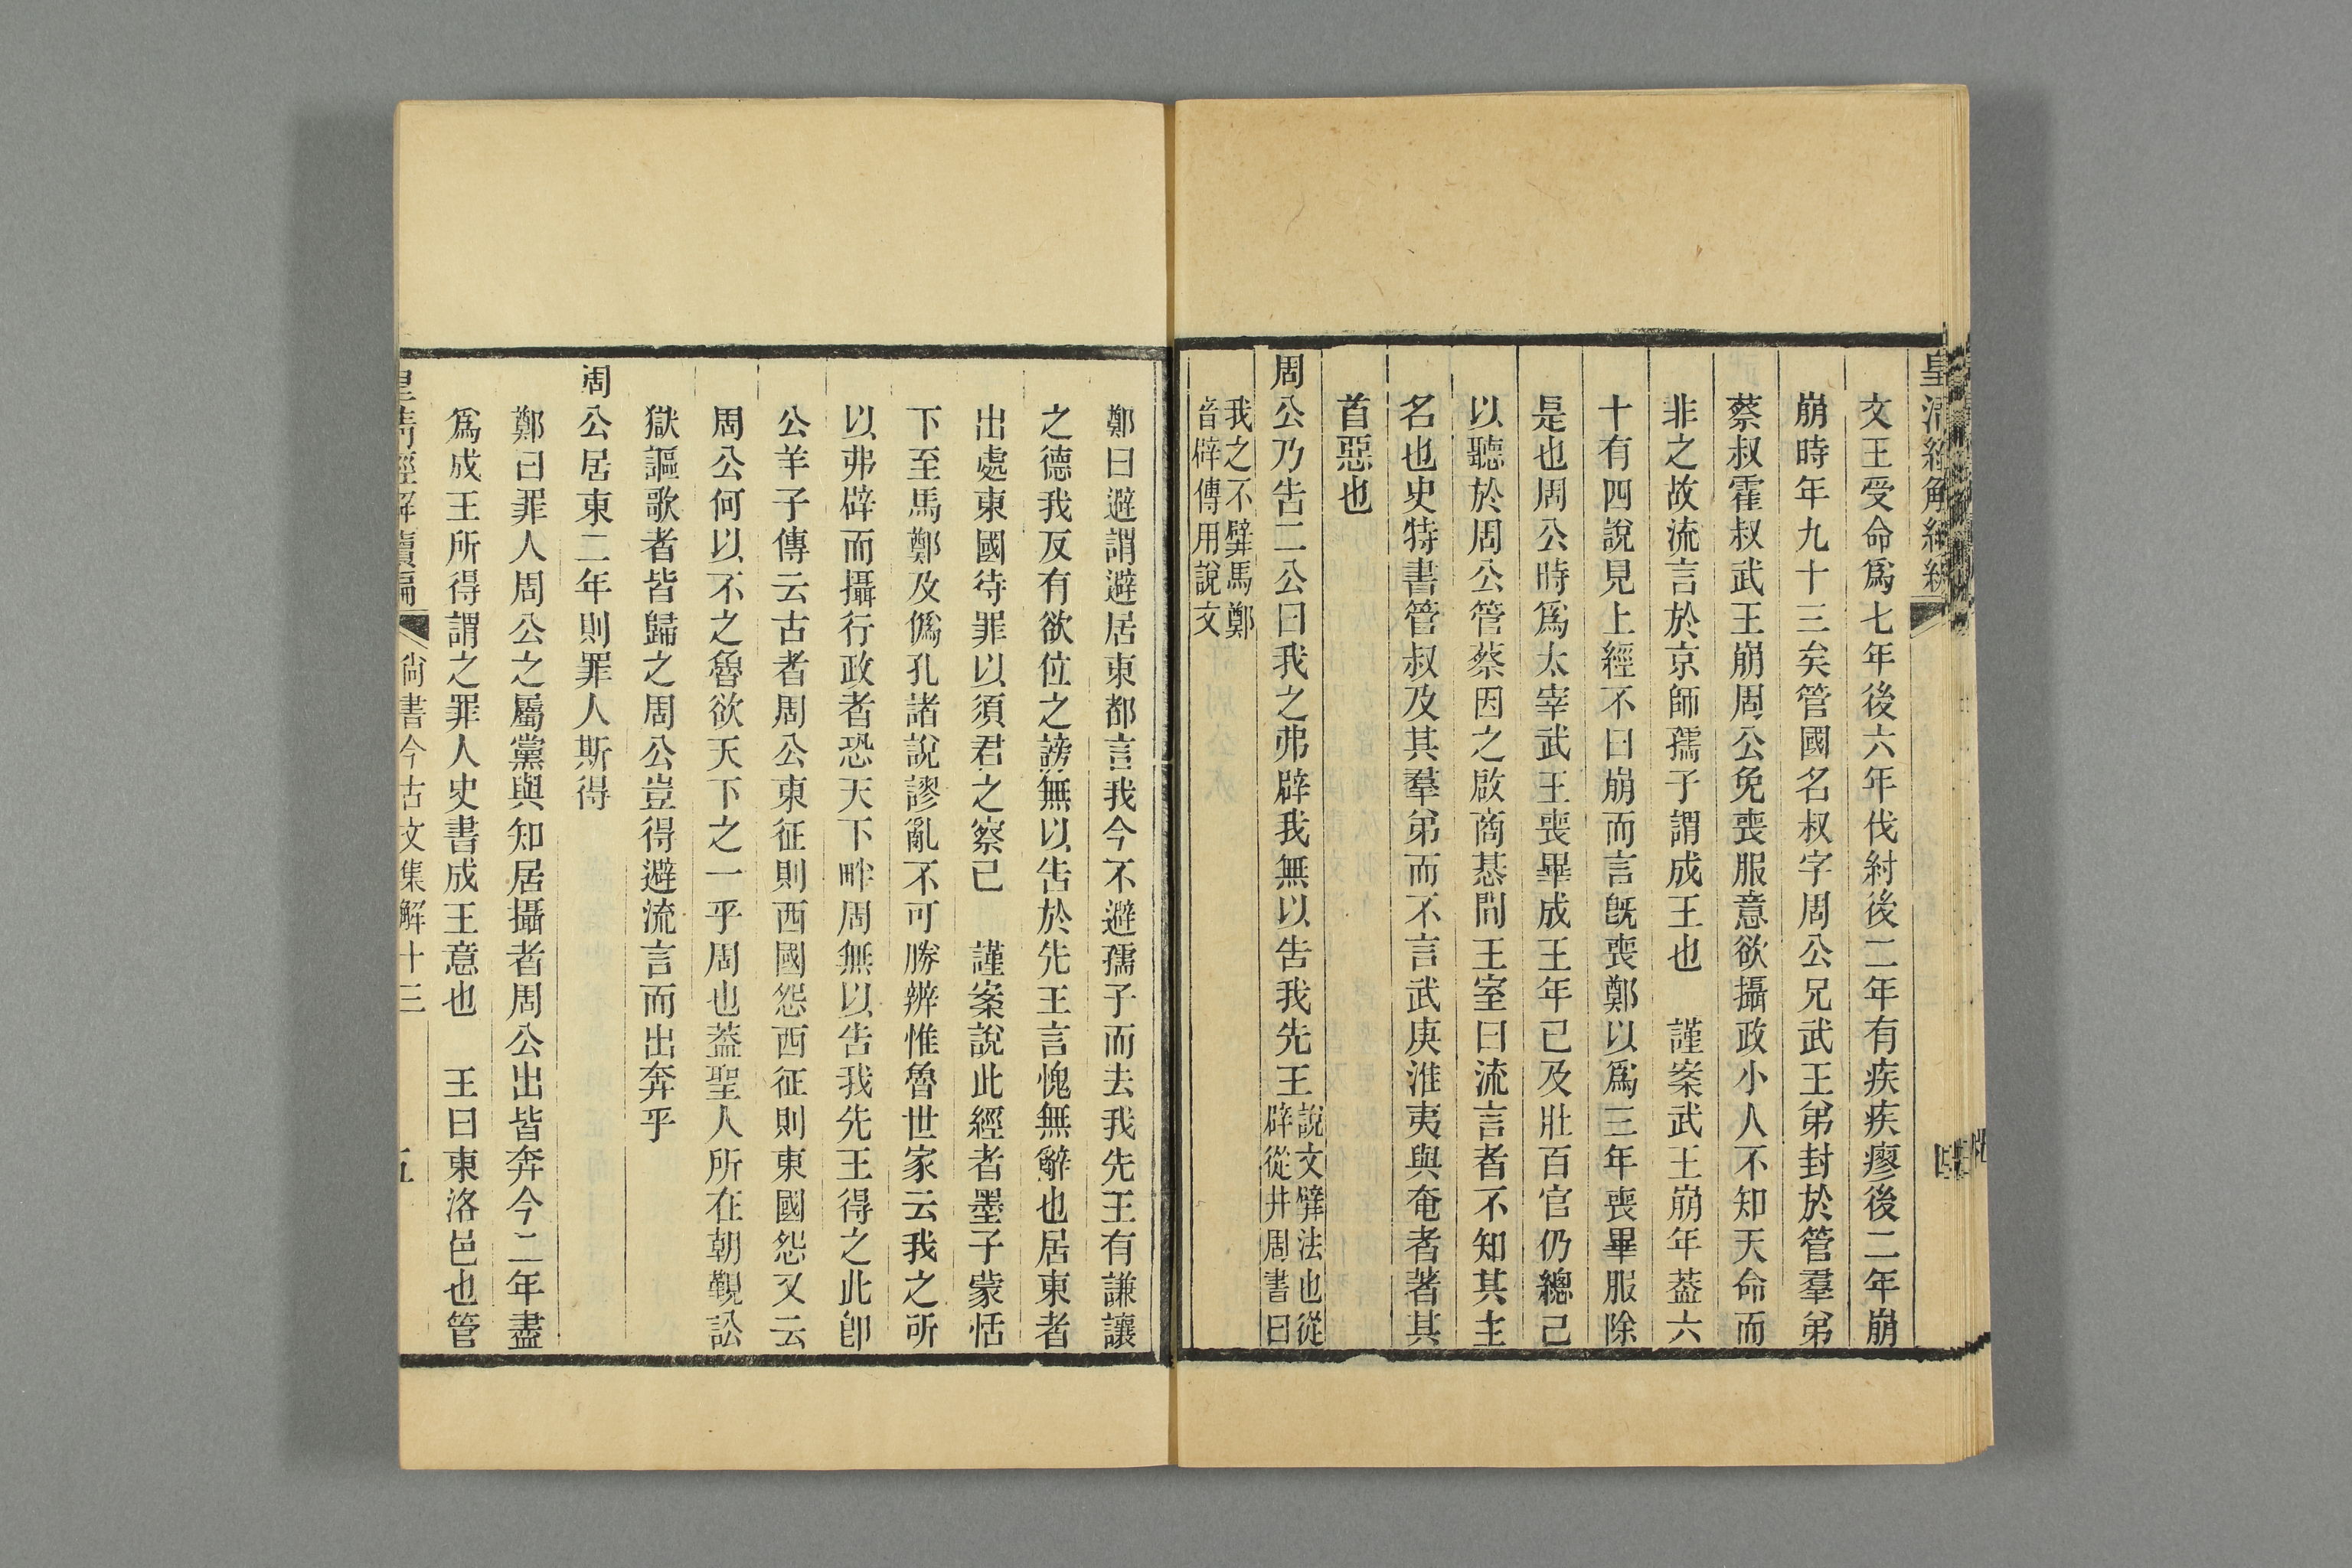 皇清經解續編
文王受命爲七年後六年伐紂後二年有疾疾瘳後二年崩
崩時年九十三矣管國名叔字周公兄武王弟封於管羣弟
蔡叔霍叔武王崩周公免喪服意欲攝政小人不知天命而
非之故流言於京師孺子謂成王也　謹案武王崩年葢六
十有四說見上經不曰崩而言旣喪鄭以爲三年喪畢服除
是也周公時爲太宰武王喪畢成王年已及壯百官仍總己
以聽於周公管蔡因之啟商惎間王室曰流言者不知其主
名也史特書管叔及其羣弟而不言武庚淮夷與奄者著其
首惡也
周公乃告二公曰我之弗辟我無以告我先王
說文㢸法也從
辟從井周書曰
我之不㢸馬鄭
音辟傳用說文
鄭曰避謂避居東都言我今不避孺子而去我先王有謙讓
之德我反有欲位之謗無以告於先王言愧無辭也居東者
出處東國待罪以須君之察己　謹案說此經者墨子蒙恬
下至馬鄭及僞孔諸說謬亂不可勝辨惟魯世家云我之所
以弗辟而攝行政者恐天下畔周無以告我先王得之此卽
公羊子傳云古者周公東征則西國怨西征則東國怨又云
周公何以不之魯欲天下之一乎周也葢聖人所在朝覲訟
獄謳歌者皆歸之周公豈得避流言而出奔乎
周公居東二年則罪人斯得
鄭曰罪人周公之屬黨與知居攝者周公出皆奔今二年盡
爲成王所得謂之罪人史書成王意也　王曰東洛邑也管
皇清經解續編
尙書今古文集解十三
五